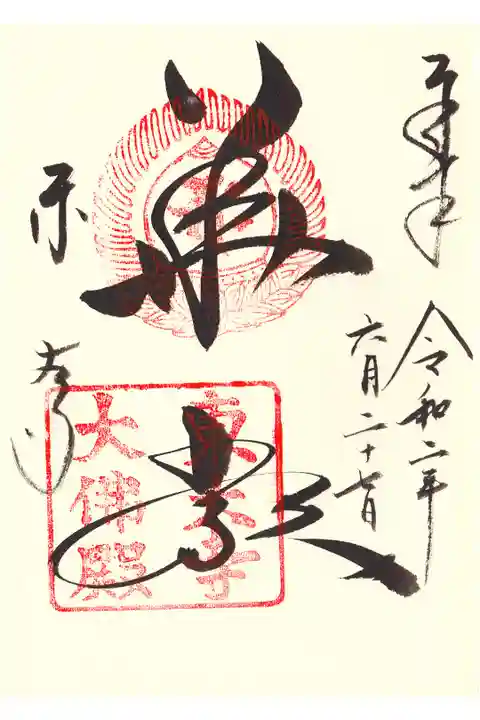 奉拝
令和二年
六月二十七日
華嚴
東大寺
東大寺
大佛殿